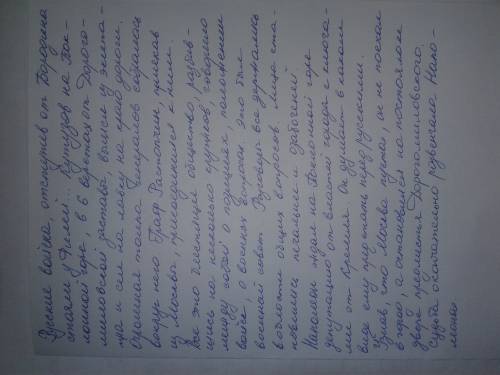 Русские войска, отступив от Бородина
стояли у Филей. Кутузов на Пок-
лонной горе, в 6 верстах от Дорого-
миловской заставы, вышел из экипа-
жа и сел на лавку на краю дороги.
Огромная толпа генералов собралась
вокруг него. Граф Растопчин, приехав
из Москвы, присоединился к ним.
Все это блестящее общество, разбив-
шись на несколько кружков, говорило
между собой о позиции, положении
войск, о военных вопросах. Это был
военный совет. Разговоры все держались
в области общих вопросов. Лица ста-
новились печальнее и озабоченней
Наполеон ждал на Поклонной горе
депутацию от властей города с ключа-
ми от Кремля. Он думал в каком
виде ему предстать пред русскими.
Узнав что Москва пуста, он не поехал
в город, а остановился на постоялом
дворе предместья Дорогомиловского.
Судьба окончательно развенчала Напо-
леона